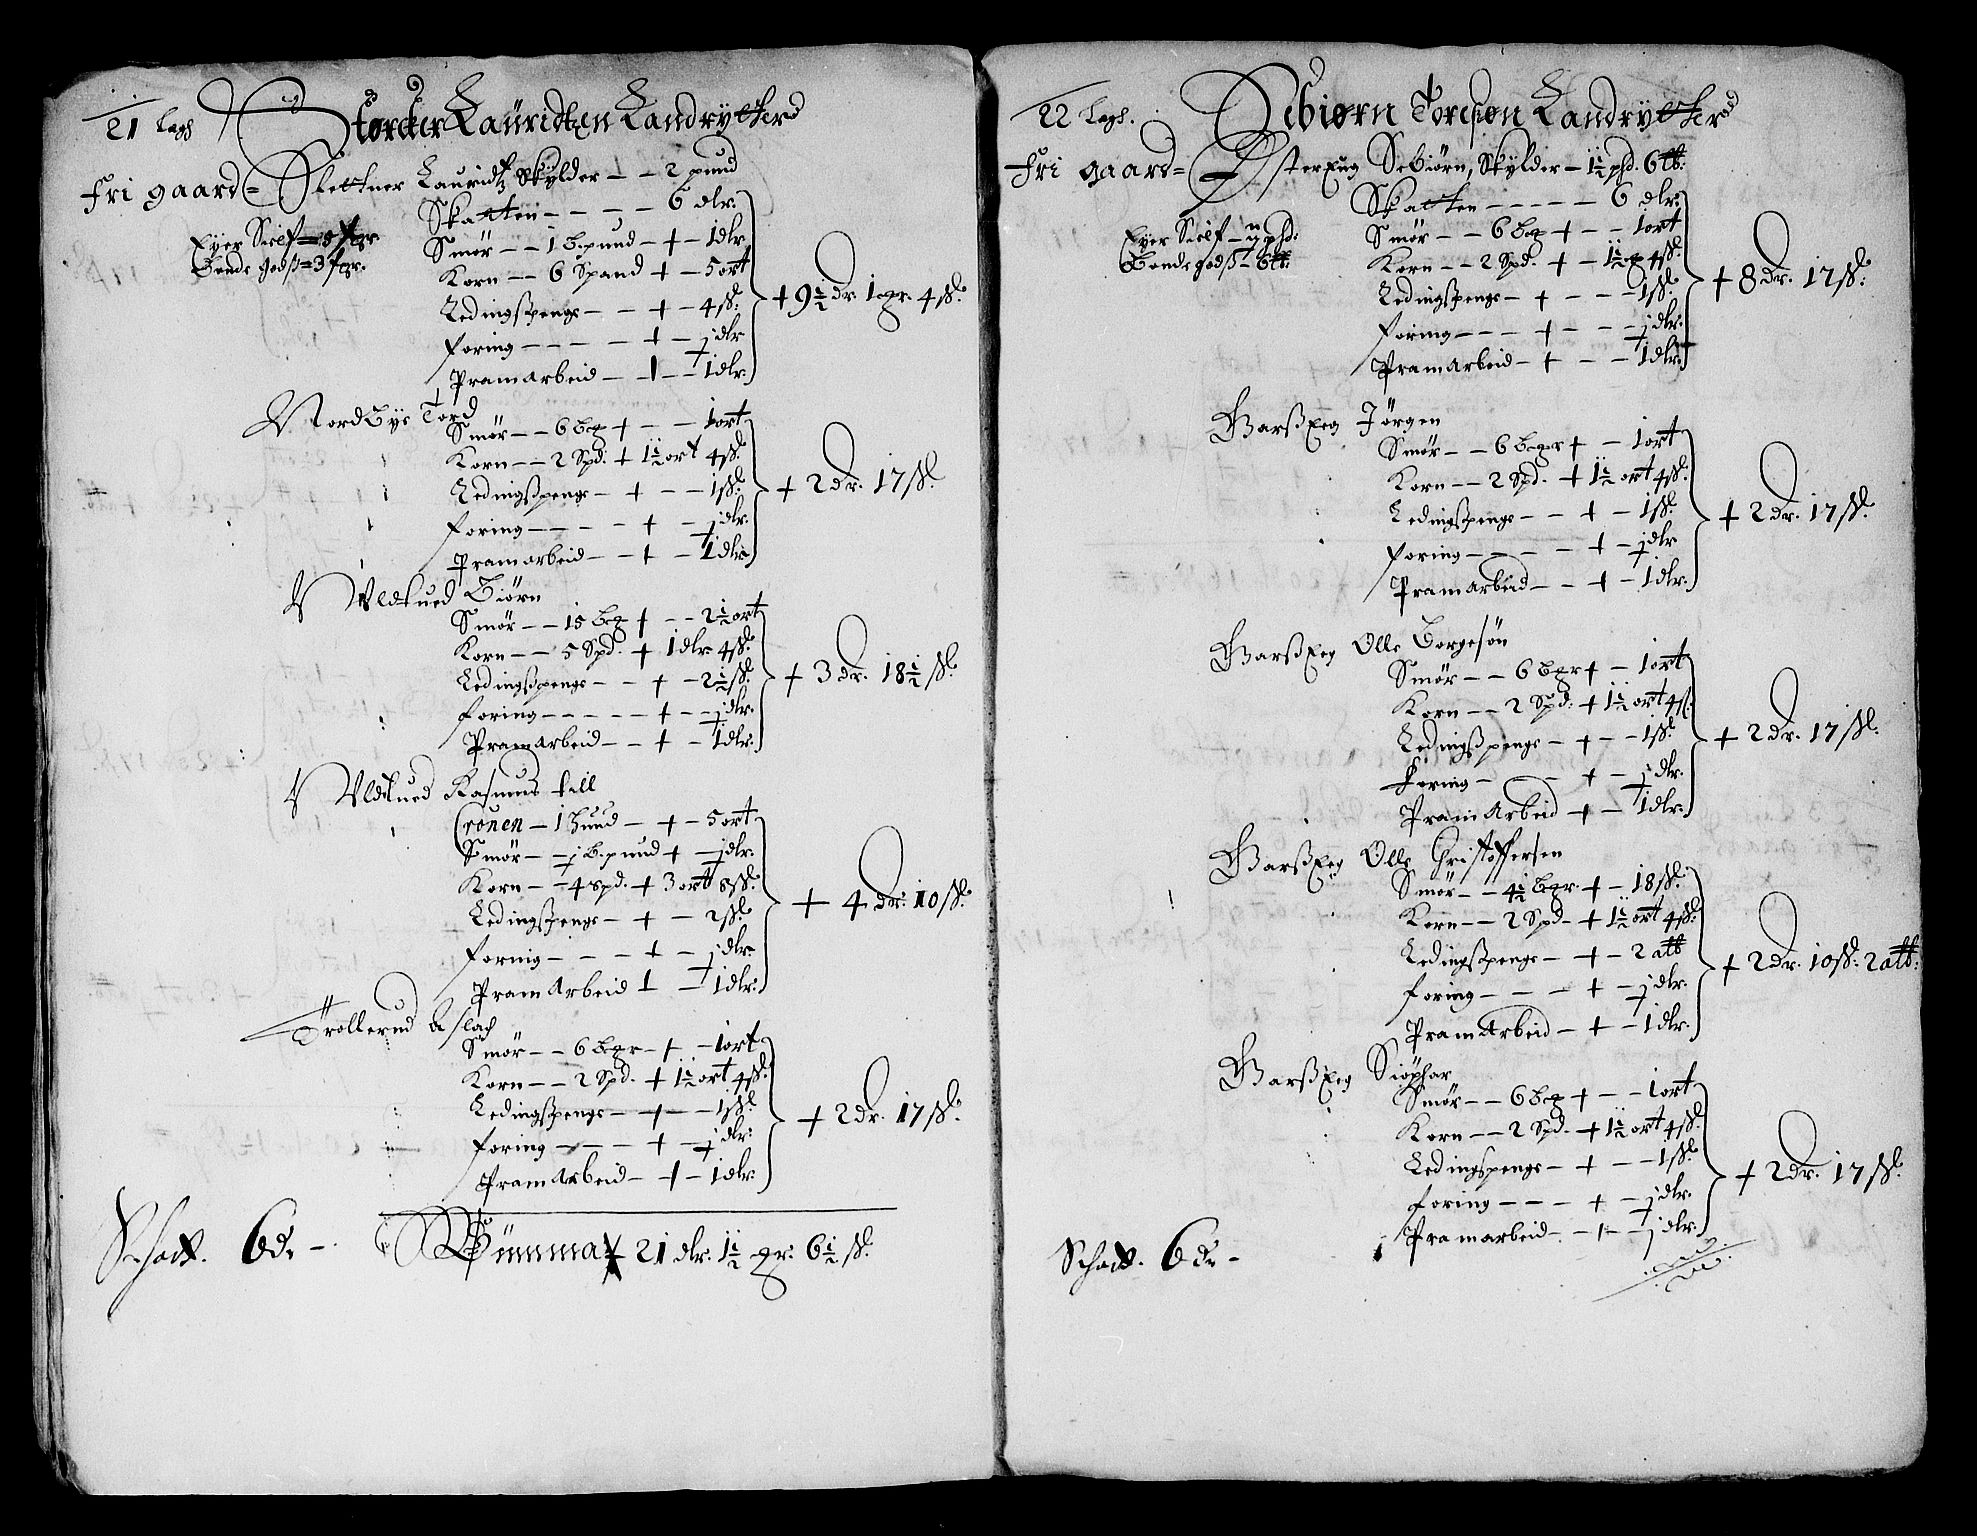 21 lagh
Størcker Lauridtzen Landrytterd
Fri gaard = Slettner Lauridtz Skylder - - 2 pund
Eyer Sielf
Bonde godß = 3 fgr.
Skatten - - - - 6 dlr.
Smør - - 1 B.pund - + - 1 dlr
Korn - - 6 Spand + - 5 ort
Ledingßpenge - - + - 4 ß.
Foring - - - - - + - j dlr
Pramarbeid - - 1 - - 1 dlr.
+ 9½ dr. 1 gr. 4 ß.
Nordbye Tord
Smør - - 6 bg + - - 1 ort
Korn - - 2 Spd. + 1½ ort 4 ß.
Ledingßpenge - + - - 1 ß.
Foring - - - - + - j dlr.
Pramarbeid - - + - 1 dlr.
+ 2 dr. 17 ß.
Biørn
Smør - - 15 bg + - - 2½ ort
Korn - - 5 Spd. + 1 dlr. 4 ß.
Ledingßpenge - - + - 2½ ß.
Foring - - - - - + - - j dlr.
Pramarbeid - - + - 1 dlr.
+ 3 dr. 18½ ß.
Rasmus till
Cronen - 1 Huud - + - 5 ort
Smør - - j b.pund + - j dlr.
Korn - - 4 spd. + 3 ort 8 ß.
Ledingßpenge - + - 2 ß.
Foring - - - - + - j dlr.
Pramarbeid 1 - 1 dlr.
+ 4 dr. 10 ß.
Trollerud Aslach
Smør - - 6 bgr - + - 1 ort
Korn - - 2 Spd. + 1½ ort 4 ß.
Ledingßpenge - + - - 1 ß.
Foring - - - - + - j dlr.
Pramarbeid - + - 1 dlr.
+ 2 dr. 17 ß.
Schatt. 6 dr -
Summa + 21 dlr. 1½ gr. 6½ ß.
22 Lagh.
Sebiørn Toresøn Landrytterd
Fri gaard = Østereug Sebiørn, Skylder - 1½ pd. 6 tb.
Eyer Sielf
Bonde godß - 6 tb.
Skatten - - - - - 6 dlr.
Smør - - 6 bg + - - 1 ort
Korn - - 2 Spd. + - 1½ gr 4 ß.
Ledingßpenge - + - - - 1 ß.
Foring - - - - + - - - j dlr.
Pramarbeid - + - - 1 dlr.
+ 8 dr. 17 ß.
Garßeeg Jørgen
Smør - - 6 bgr + - 1 ort
Korn - - 2 Spd. + 1½ ort 4 ß.
Ledingßpenge - - + - 1 ß.
Foring - - - - - + - j dlr
Pramarbeid - - + - 1 dlr.
+ 2 dr. 17 ß.
Garßeeg Olle Borgesøn
Smør - - 6 bgr + - 1 ort
Korn - - 2 Spd. + 1½ ort 4 ß.
Ledingßpenge - + - - 1 ß.
Foring - - - - + - j dlr.
Pramarbeid + - 1 dlr.
+ 2 dr. 17 ß.
Garßeeg Olle Christoffersen
Smør - - 4½ bgr. + - 18 ß.
Korn - - 2 Spd - + 1½ ort 4 ß.
Ledingßpenge - + - 2 alb
Foring - - - - + - j dlr.
Pramarbeid - + - 1 dlr.
+ 2 dr. 10 ß. 2 alb.
Garßeeg
Smør - - 6 bg + - - 1 ort
Korn - - 2 Spd. + 1½ ort 4 ß.
Ledingspenge - + - - 1 ß
Foring - - - + - j dlr.
Pramarbeid. - + - j dlr.
+ 2 dr. 17 ß.
Schatt. 6 dr -